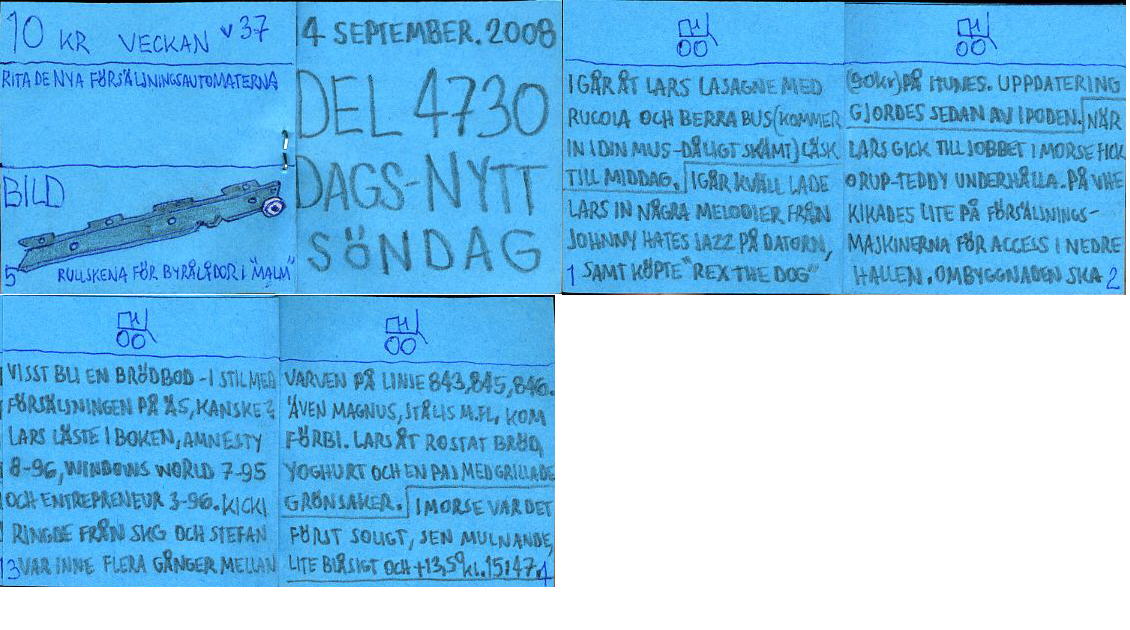 10 KR VECKAN V 37
RITA DE NYA FÖRSÄLJNINGSAUTOMATERNA
BILD
5 RULLSKENA FÖR BYRÅLÅDOR I "MALM"
4 SEPTEMBER. 2008
DEL 4730
DAGS-NYTT
SÖNDAG
IGÅR ÅT LARS LASAGNE MED
RUCOLA OCH BERRA BUS (KOMMER
IN I DIN MUS-DÅLIGT SKÄMT) LÄSK
TILL MIDDAG. IGÅR KVÄLL LADE
LARS IN NÅGRA MELODIER FRÅN
JOHNNY HATES JAZZ PÅ DATORN,
1 SAMT KÖPTE "REX THE DOG"
(90kr) PÅ ITUNES. UPPDATERING
GJORDES SEDAN AV IPODEN. NÄR
LARS GICK TILL JOBBET I MORSE FICK
ORUP-TEDDY UNDERHÅLLA. PÅ VHE
KIKADES LITE PÅ FÖRSÄLJNINGS-
MASKINERNA FÖR ACCESS I NEDRE
HALLEN. OMBYGGNADEN SKA 2
VISST BLI EN BRÖDBOD - I STIL MED
FÖRSÄLJNINGEN PÅ ÅS, KANSKE?
LARS LÄSTE I BOKEN, AMNESTY
8-96, WINDOWS WORLD 7-95
OCH ENTREPRENEUR 3-96. KICKI
RINGDE FRÅN SKG OCH STEFAN
3 VAR INNE FLERA GÅNGER MELLAN
VARVEN PÅ LINJE 843, 845, 846.
ÄVEN MAGNUS, STÅLIS M.FL, KOM
FÖRBI. LARS ÅT ROSTAT BRÖD,
YOGHURT OCH EN PAJ MED GRILLADE
GRÖNSAKER. I MORSE VAR DET
FÖRST SOLIGT, SEN MULNANDE,
LITE BLÅSIGT OCH +13,5° kl. 15:47. 4